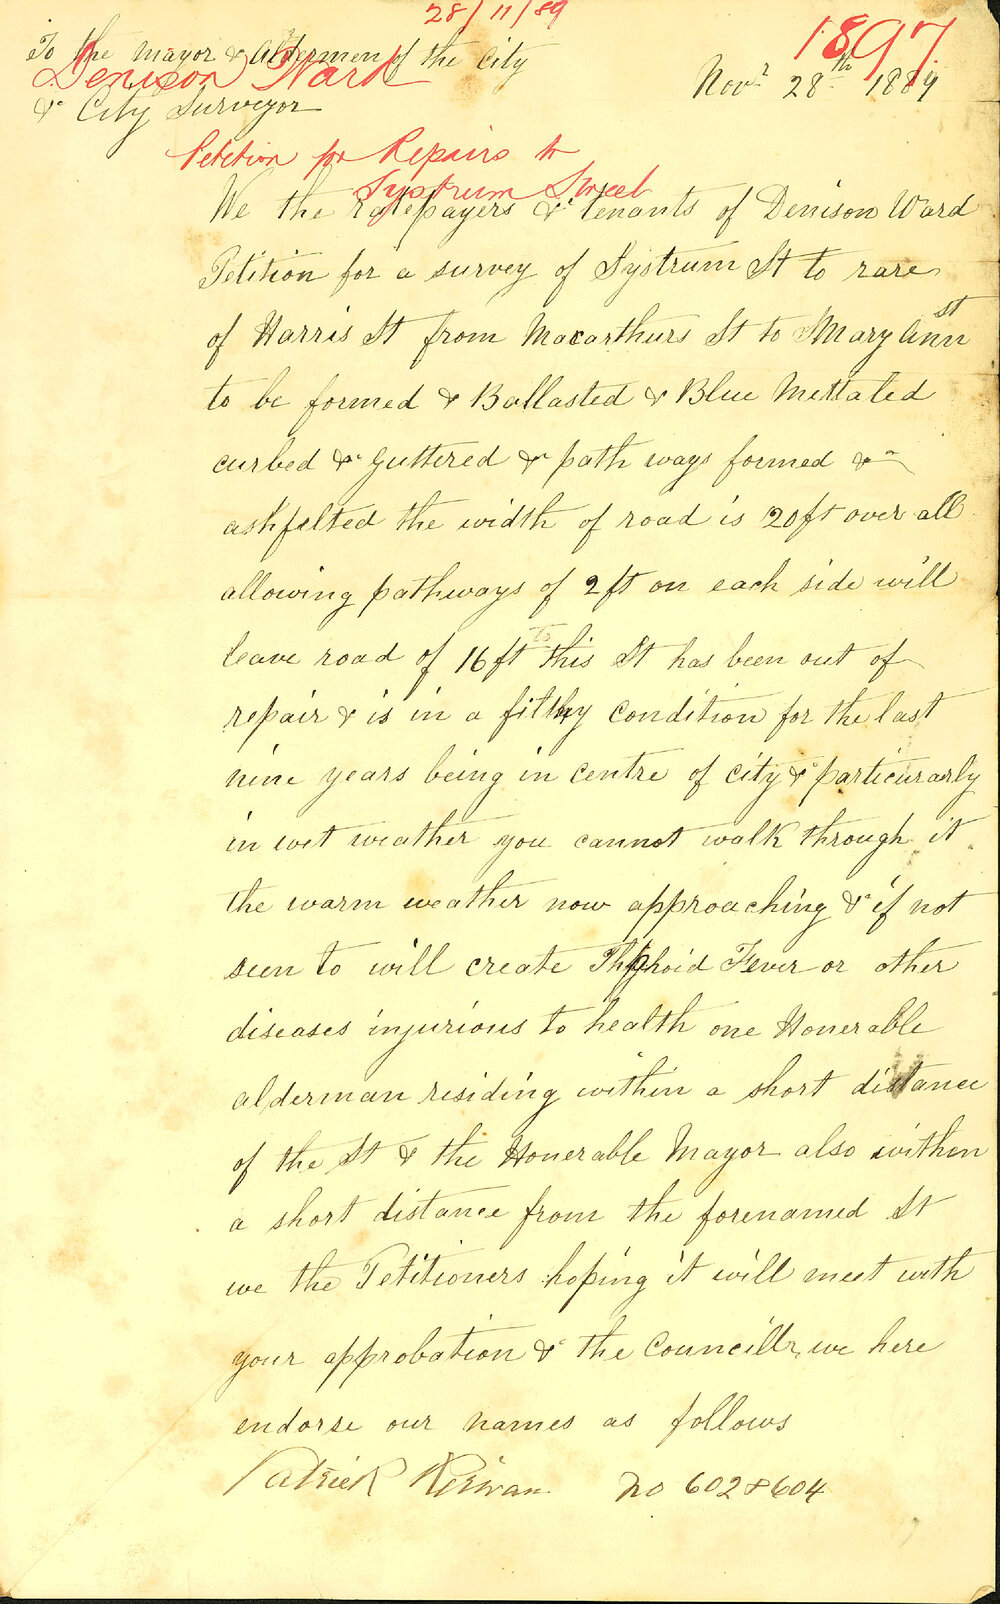 28/11/89
1897
To the Mayor & Aldermen of the City
Denison Ward
Novr 28th 1889
& City Surveyor
Petition for Repairs to
Systrum Street
We the ratepayers & tenants of Denison Ward
Petition for a survey of Systrum St to rare
of Harris St from Macarthurs St to Mary Ann St
to be formed & Ballasted & Blue Mettaled
curbed & guttered & path ways formed &
ashfelted the width of road is 20ft over all
allowing pathways of 2ft on each side will
leave road of 16ft this St has been out of
repair & is in a filthy condition for the last
nine years being in centre of city & particurarly
in wet weather you cannot walk through it
the warm weather now approaching & if not
seen to will create Thphoid Fever or other
diseases injurious to health one Honerable
alderman residing within a short distance
of the St & the Honerable Mayor also within
a short distance from the forenamed St
we the Petitioners hoping it will meet with
your approbation & the Councillr, we here
endorse our names as follows
Patrick Kirwan no 602 & 604